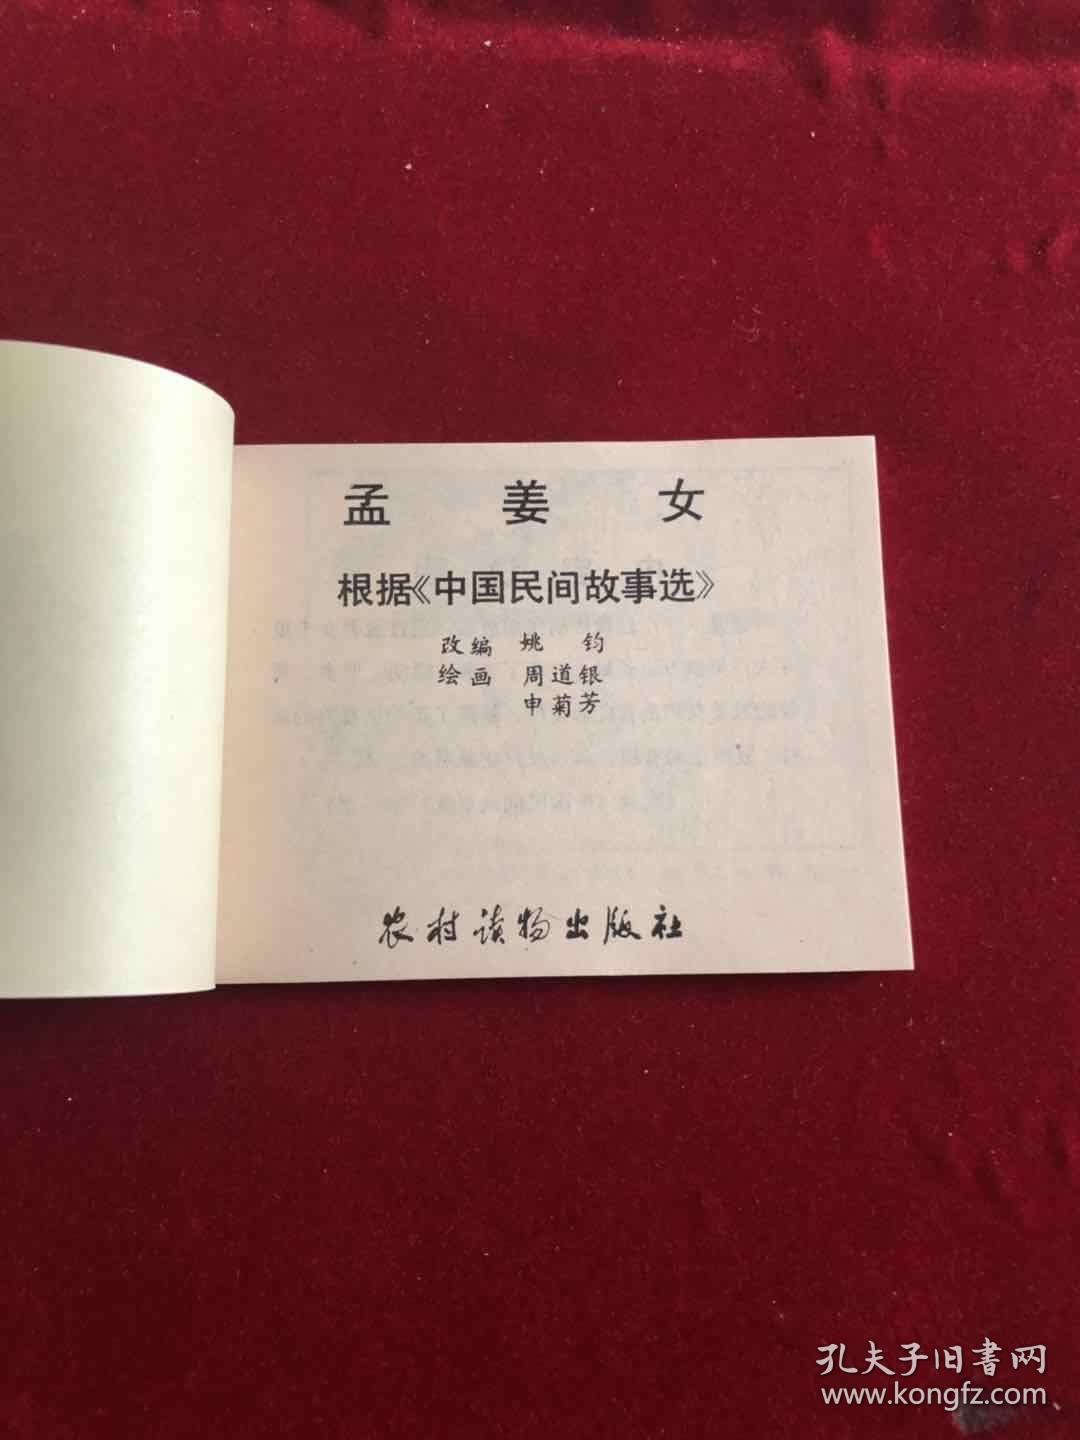 孟 姜 女
根据《中国民间故事选》
改编 姚 钧
绘画 周道银
申菊芳
农村读物出版社
孔夫子旧书网
www.kongfz.com